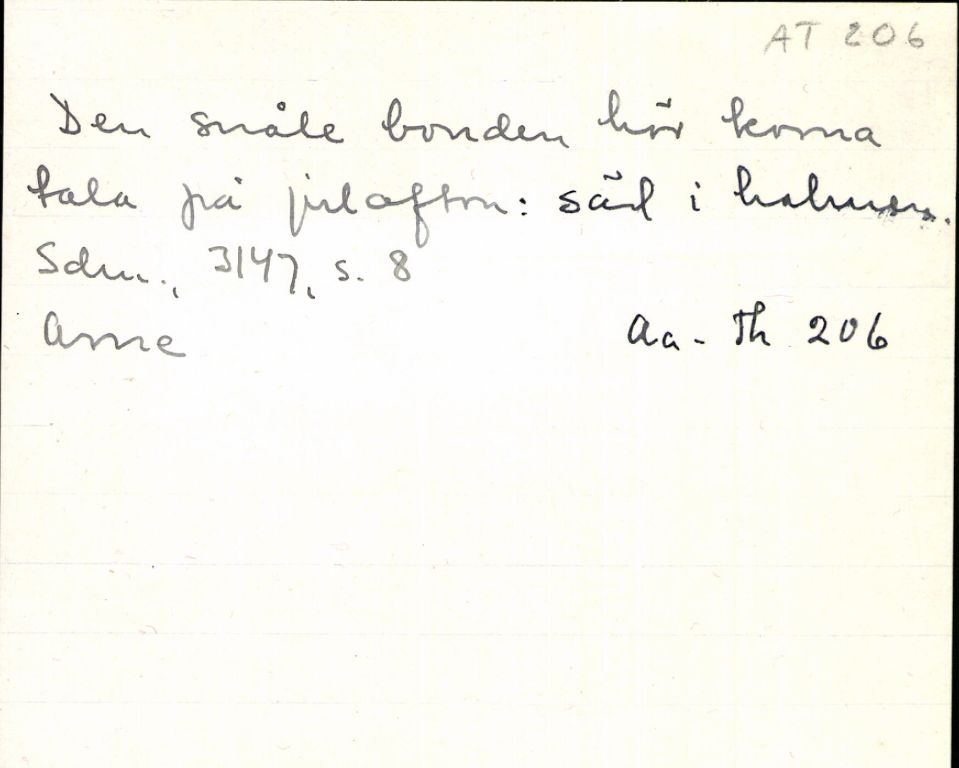 AT 206
Den snåle bonden hör korna
tala på julafton: säd i halmen.
Sdm., 3147, s. 8
Arne
Aa-Th 206